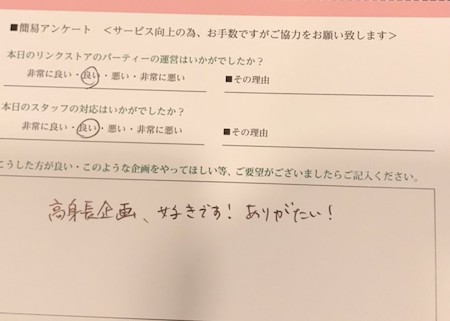 ■簡易アンケート　＜サービス向上の為、お手数ですがご協力をお願い致します＞
本日のリンクストアのパーティーの運営はいかがでしたか？
非常に良い・良い・悪い・非常に悪い　■その理由
本日のスタッフの対応はいかがでしたか？
非常に良い・良い・悪い・非常に悪い　■その理由
こうした方が良い・このような企画をやってほしい等、ご要望がございましたらご記入ください。
高身長企画、好きです！ありがたい！